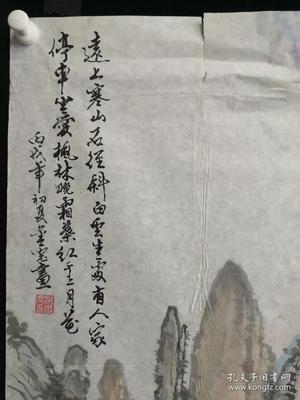 遠上寒山石徑斜白雲生處有人家
停車坐愛楓林晚霜葉紅于二月花
丙戌年初夏
畫
孔夫子旧书网